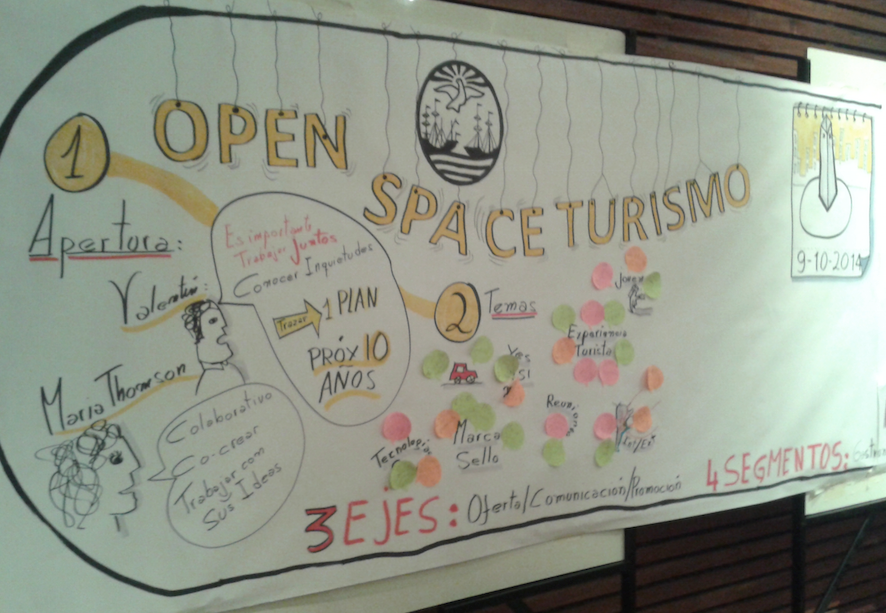 OPEN
SPACE TURISMO
9-10-2014
1
Apertura:
Valentín:
Es importante
Trabajar Juntos
Conocer Inquietudes
Trazar 1 PLAN
PRÓX 10
AÑOS
Maria Thomson
Colaborativo
Co-crear
Trabajar com
Sus Ideas
2 Temas
Experiencia
Turista
Marca
Sello
3 EJES: Oferta/Comunicación/Promoción
4 SEGMENTOS: